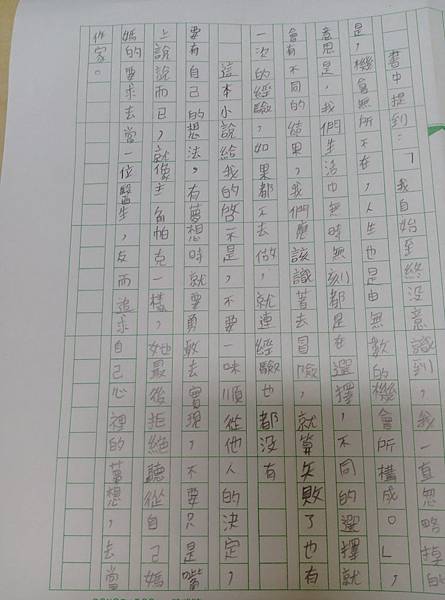 書中提到：「我自始至終沒意識到，我一直忽略掉的
是，機會無所不在，人生也是由無數的機會所構成。」，
意思是，我們生活中無時無刻都是在選擇，不同的選擇就
會有不同的結果，我們應該識著去冒險，就算失敗了也有
一次的經驗，如果都不去做，就連經驗也都沒有
這本小說給我的啟示是，不要一味順從他人的決定，
要有自己的想法，有夢想時就要勇敢去實現，不要只是嘴
上說說而已，就像主角帕克一樣，她最後拒絕聽從自己媽
媽的要求去當一位醫生，反而追求自己心裡的夢想，去當
作家。